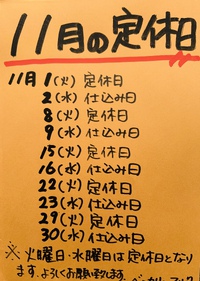 11月の定休日
11月 1(火) 定休日
2(水) 仕込み日
8(火) 定休日
9(水) 仕込み日
15(火) 定休日
16(水) 仕込み日
22(火) 定休日
23(水) 仕込み日
29(火) 定休日
30(水) 仕込み日
※ 火曜日・水曜日は定休日となり
ます。よろしくお願い致します。